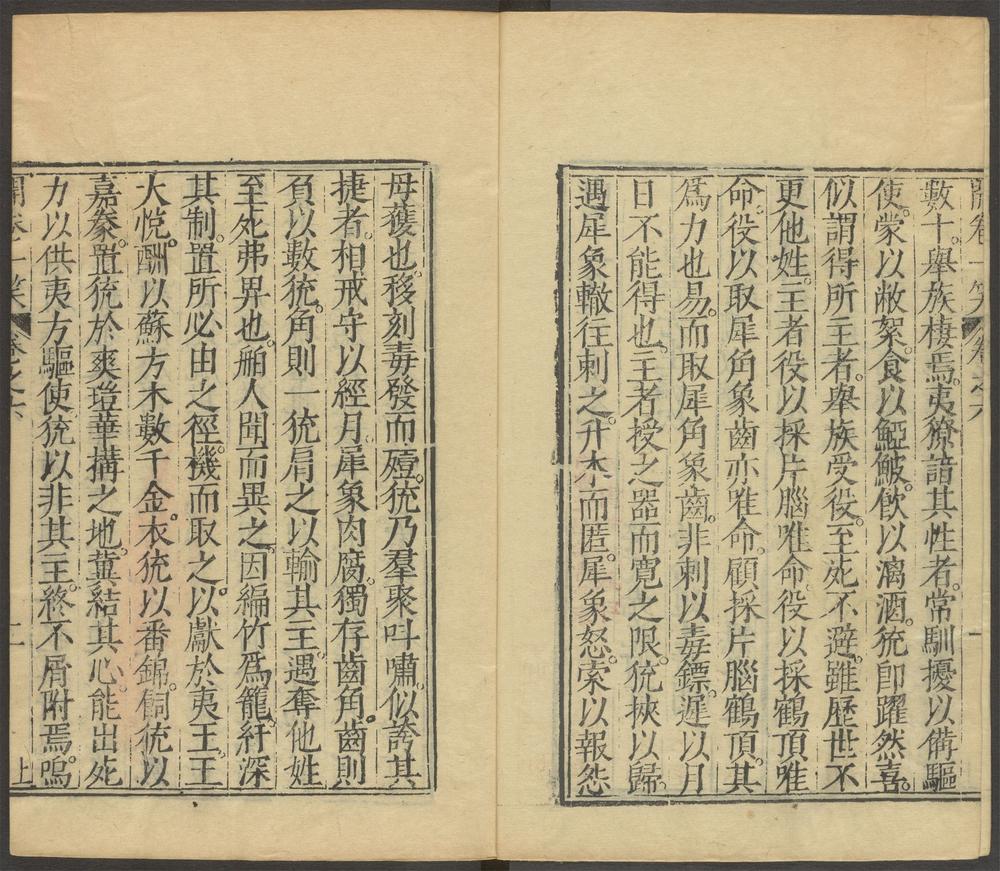 開卷一笑 卷之六 一
數十。舉族棲焉。夷獠諳其性者。常馴擾以備驅
使。蒙以敝絮。食以䱉鮍。飲以漓酒。㹶卽躍然喜。
似謂得所主者。舉族受役。至死不避。雖歷世不
更他姓。主者役以採片腦唯命。役以採鶴頂唯
命。役以取犀角象齒亦唯命。顧採片腦鶴頂。其
爲力也易。而取犀角象齒。非刺以毒鏢。遲以月
日不能得也。主者授之器而寬之限。㹶挾以歸。
遇犀象轍徃刺之。升木而匿。犀象怒。索以報怨
毋獲也。移刻毒發而殪。㹶乃羣聚呌嘯。似誇其
捷者。相戒守以經月。犀象肉腐。獨存齒角。齒則
負以數㹶。角則一㹶肩之以輸其主。遇奪他姓
至死弗畀也。舶人聞而異之。因編竹爲籠。紆深
其制。置所必由之徑。機而取之。以獻於夷王。王
大悅。酬以蘇方木數千金。衣㹶以番錦。飼㹶以
嘉豢。置㹶於爽塏華搆之地。冀結其心。能出死
力以供夷方驅使。㹶以非其主。終不屑附焉。嗚
開卷一笑 卷之六 二 上